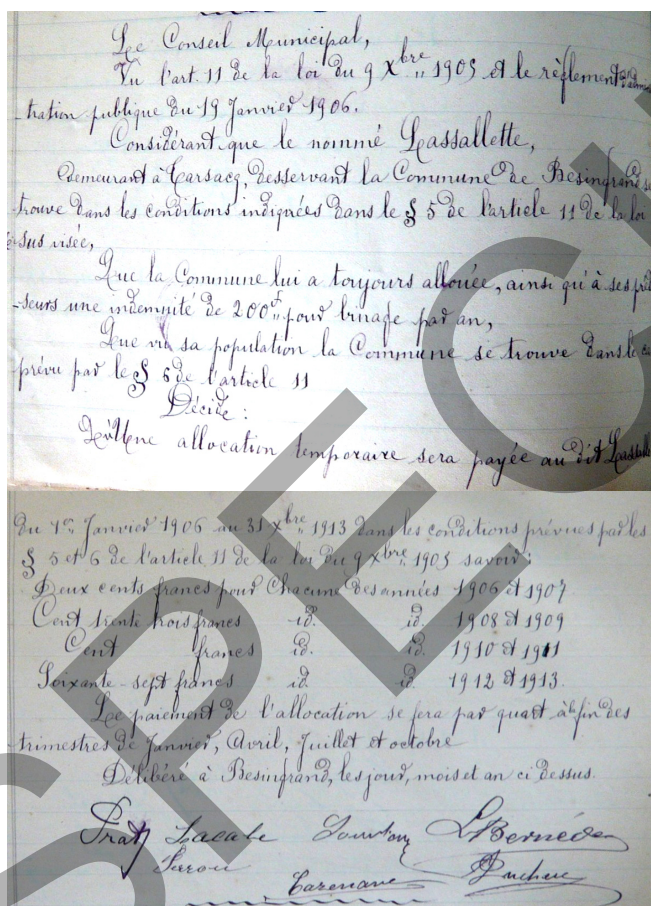 Le Conseil Municipal,
Vu l'art. 11 de la loi du 9 Xbre 1905 et le règlement d'admi
-tration publique du 19 Janvier 1906.
Considérant que le nommé Lassallette,
demeurant à Tarsacq, desservant la Commune de Besingrand se
trouve dans les conditions indiquées dans le § 5 de l'article 11 de la loi
sus visée,
Que la Commune lui a toujours allouée, ainsi qu'à ses préd
-seurs une indemnité de 200f pour binage par an,
Que vu sa population la Commune se trouve dans le ca
prévu par le § 6 de l'article 11
Décide:
Qu'Une allocation temporaire sera payée au dit Lassalle
du 1er Janvier 1906 au 31 Xbre 1913 dans les conditions prévues par les
§ 5 et 6 de l'article 11 de la loi du 9 Xbre 1905 savoir:
Deux cents francs pour Chacune des années 1906 et 1907
Cent trente trois francs id. id. 1908 et 1909
Cent francs id. id. 1910 et 1911
Soixante-sept francs id. id. 1912 et 1913.
Le paiement de l'allocation se fera par quart à la fin des
trimestres de Janvier, Avril, Juillet et octobre
Délibéré à Besingrand, les jour, mois et an ci dessus.
Prat Lacabe L. Bernède
Cazenave
SPECI